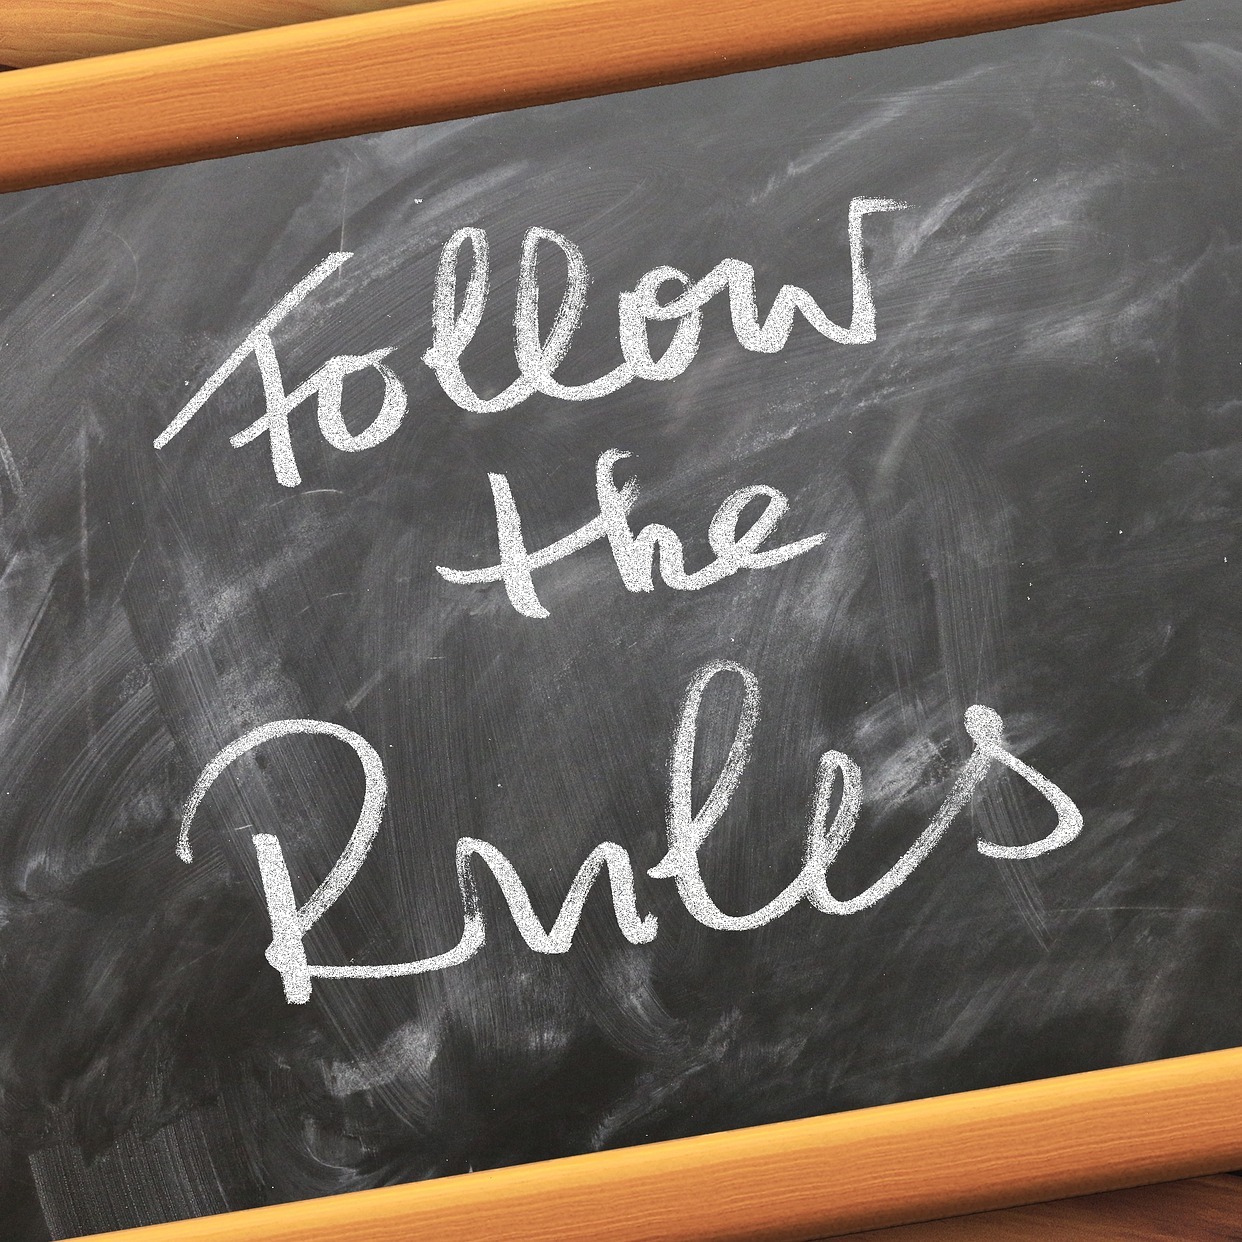 Follow
the
Rules